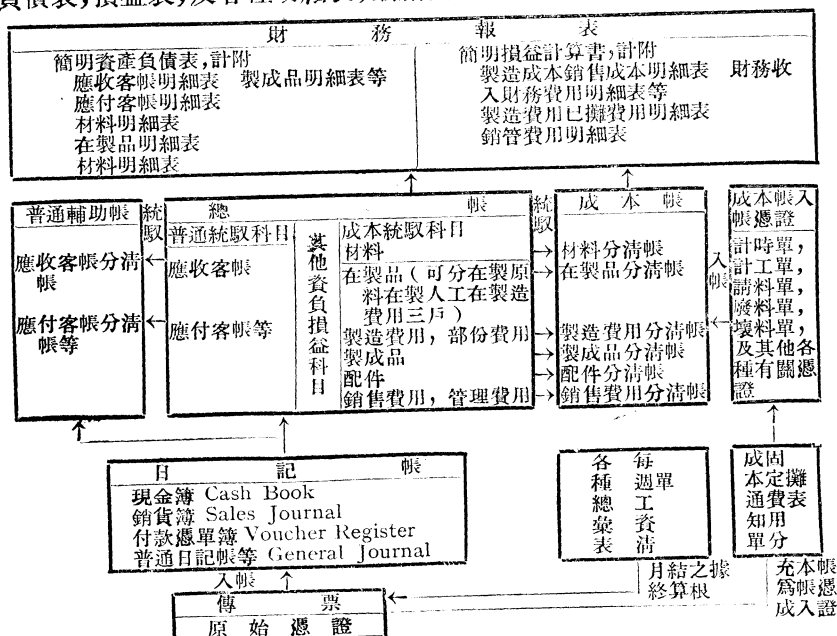 財務報表
簡明資產負債表,計附
應收客帳明細表 製成品明細表等
應付客帳明細表
材料明細表
在製品明細表
材料明細表
簡明損益計算書,計附
製造成本銷售成本明細表 財務收
入財務費用明細表等
製造費用已攤費用明細表
銷管費用明細表
普通輔助帳
應收客帳分清
帳
應付客帳分清
帳等
統馭
總帳
普通統馭科目
應收客帳
應付客帳等
其他資負損益科目
成本統馭科目
材料
在製品(可分在製原
料在製人工在製造
費用三戶)
製造費用,部份費用
製成品
配件
銷售費用,管理費用
統馭
成本帳
材料分清帳
在製品分清帳
製造費用分清帳
製成品分清帳
配件分清帳
銷售費用分清帳
入帳
成本帳入
帳憑證
計時單,
計工單,
請料單,
廢料單,
壞料單,
及其他各
種有關憑
證
日記帳
現金簿 Cash Book
銷貨簿 Sales Journal
付款憑單簿 Voucher Register
普通日記帳等 General Journal
入帳
傳票
原始憑證
每週工資清單
各種總彙表
固定費用分攤表
成本通知單
月終結算之根據
充爲成本帳入帳憑證